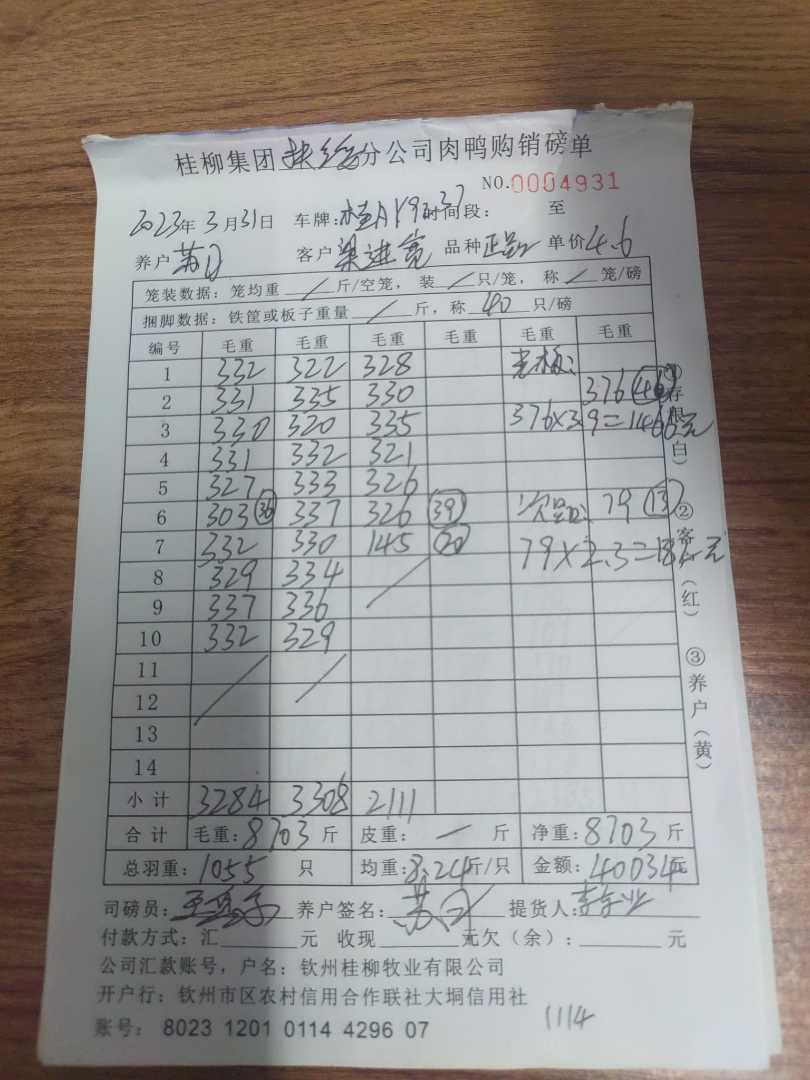 桂柳集团 分公司肉鸭购销磅单
NO.0004931
2023年3月31日 车牌: 时间段: 至
养户 苏 客户 梁进宽 品种 正品 单价 4.6
笼装数据:笼均重 / 斤/空笼,装 / 只/笼,称 / 笼/磅
捆脚数据:铁筐或板子重量 / 斤,称 40 只/磅
编号 毛重 毛重 毛重 毛重 毛重 毛重
1 332 322 328 老板:
2 331 335 330 376
3 330 320 335 376×3.9=1466元
4 331 332 321
5 327 333 326
6 303 36 337 326 39 次品: 79 13
7 332 330 145 20 79×2.3= 元
8 329 334 /
9 337 336
10 332 329
11 / /
12
13
14
小计 3284 3308 2111
合计 毛重:8703斤 皮重:—斤 净重:8703斤
总羽重:1055只 均重:8.24斤/只 金额:40034元
司磅员: 养户签名:苏 提货人:李
付款方式:汇 元 收现 元欠(余): 元
公司汇款账号,户名:钦州桂柳牧业有限公司
开户行:钦州市区农村信用合作联社大垌信用社
账号: 8023 1201 0114 4296 07
1114
①存根(白) ②客 (红) ③养户(黄)